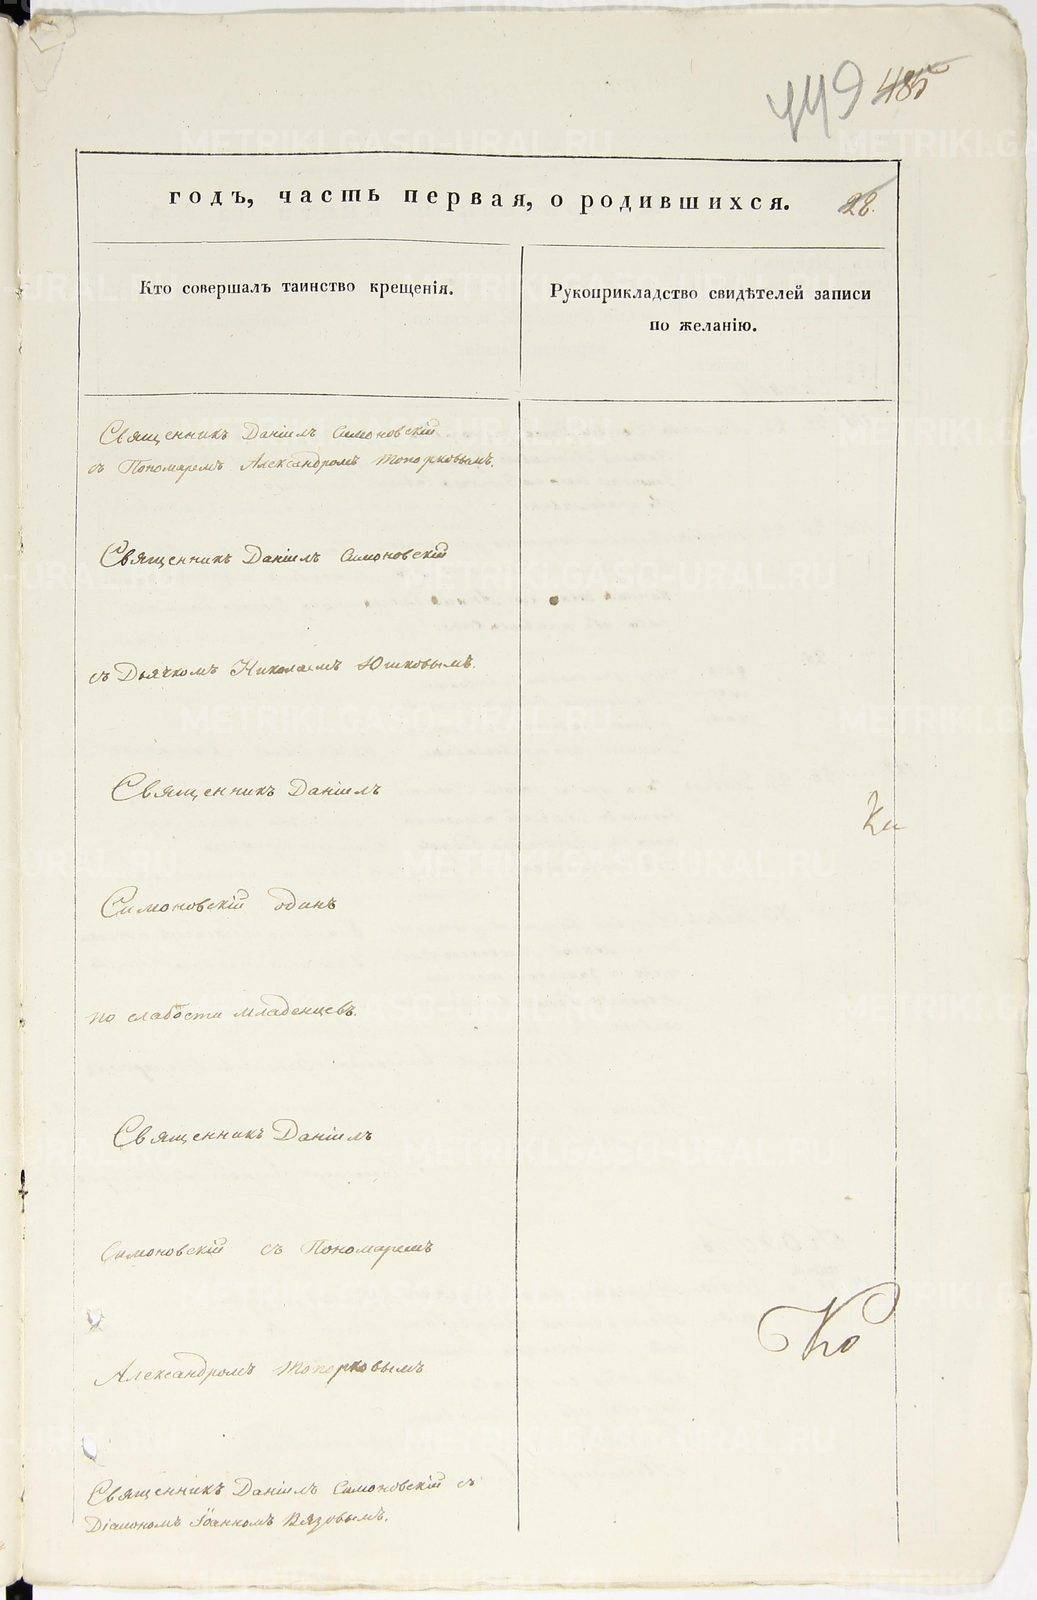 449 485
годъ, часть первая, о родившихся. 28.
Кто совершалъ таинство крещенія.
Рукоприкладство свидѣтелей записи
по желанію.
Священникъ Даніилъ Симоновскій
съ Пономаремъ Александромъ Топорковымъ.
Священникъ Даніилъ Симоновскій
съ Дьячкомъ Николаемъ Юшковымъ.
Священникъ Даніилъ
Симоновскій одинъ
по слабости младенцевъ.
Священникъ Даніилъ
Симоновскій съ Пономаремъ
Александромъ Топорковымъ
Священникъ Даніилъ Симоновскій съ
Діакономъ Іоанномъ Вязовымъ.
Ко
METRIKI.GASO-URAL.RU